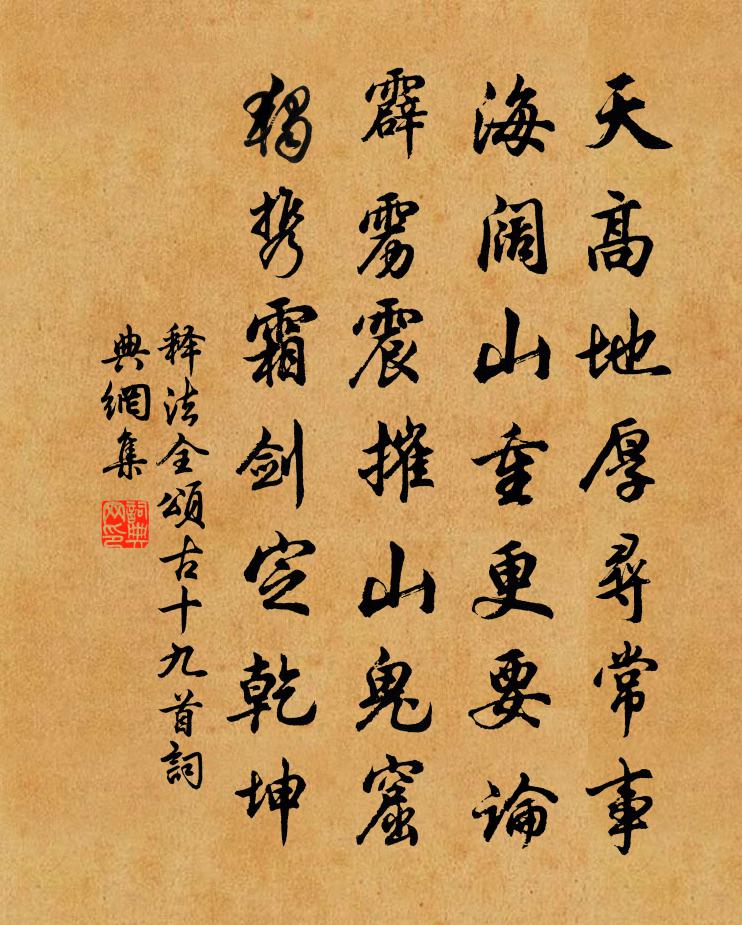 天高地厚尋常事
海阔山重更要論
霹雳震摧山鬼窟
獨携霜剑定乾坤
释法全頌古十九首詞
典網集
詞典
网印